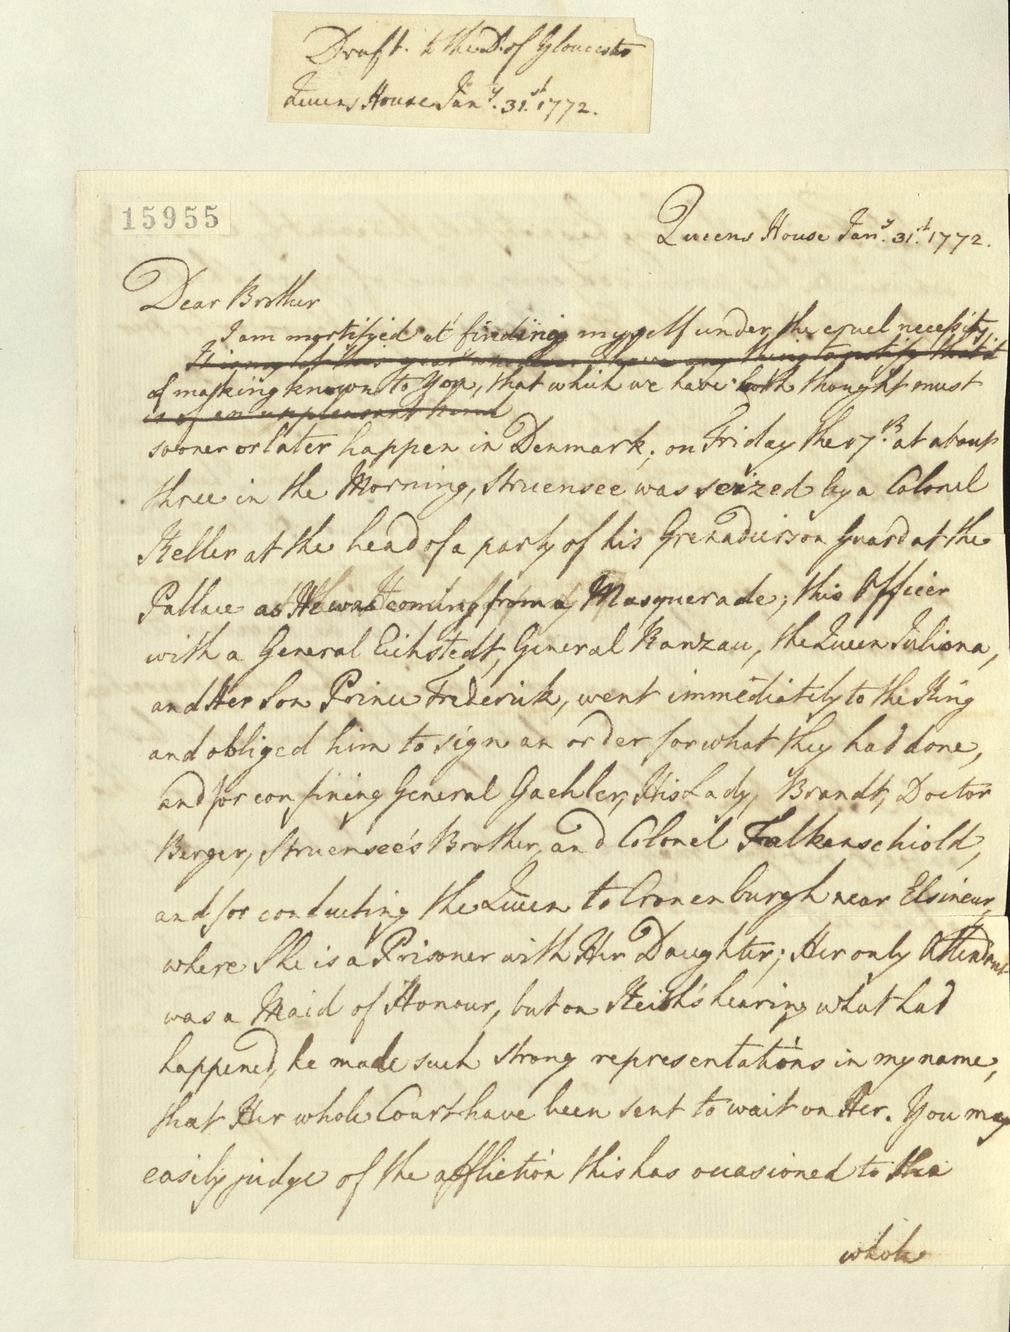 Draft. to the D. of Gloucester
Queens House Jany. 31st. 1772.
15955
Queens House Jany. 31st. 1772.
Dear Brother
I am mortifyed at finding myself under the cruel necessity,
of making known to You, that which we have both thought must
is of an unpleasant kind
sooner or later happen in Denmark; on Friday the 17th. at about
three in the Morning, Struensee was seized by a Colonel
Keller at the head of a party of his Grenadiers on guard at the
Pallace as He was coming from a Masquerade; this Officer
with a General Eichstedt, General Ranzau, the Queen Juliana,
and Her Son Prince Frederick, went immediately to the King
and obliged him to sign an order for what they had done,
and for confining General Gaehler, His Lady, Brandt, Doctor
Berger, Struensee's Brother, and Colonel Falkenschiold,
and for conducting the Queen to Cronenburgh near Elsineur,
where She is a Prisoner with Her Daughter; Her only Attendant
was a Maid of Honour, but on Keith's hearing what had
happened, he made such strong representations in my name,
that Her whole Court have been sent to wait on Her. You may
easily judge of the affliction this has occasioned to the
whole